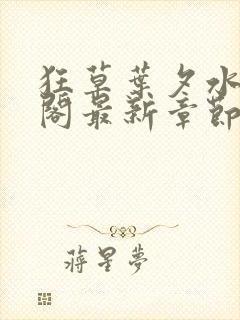 狂草葉夕水
閣最新章節
蔣星夢